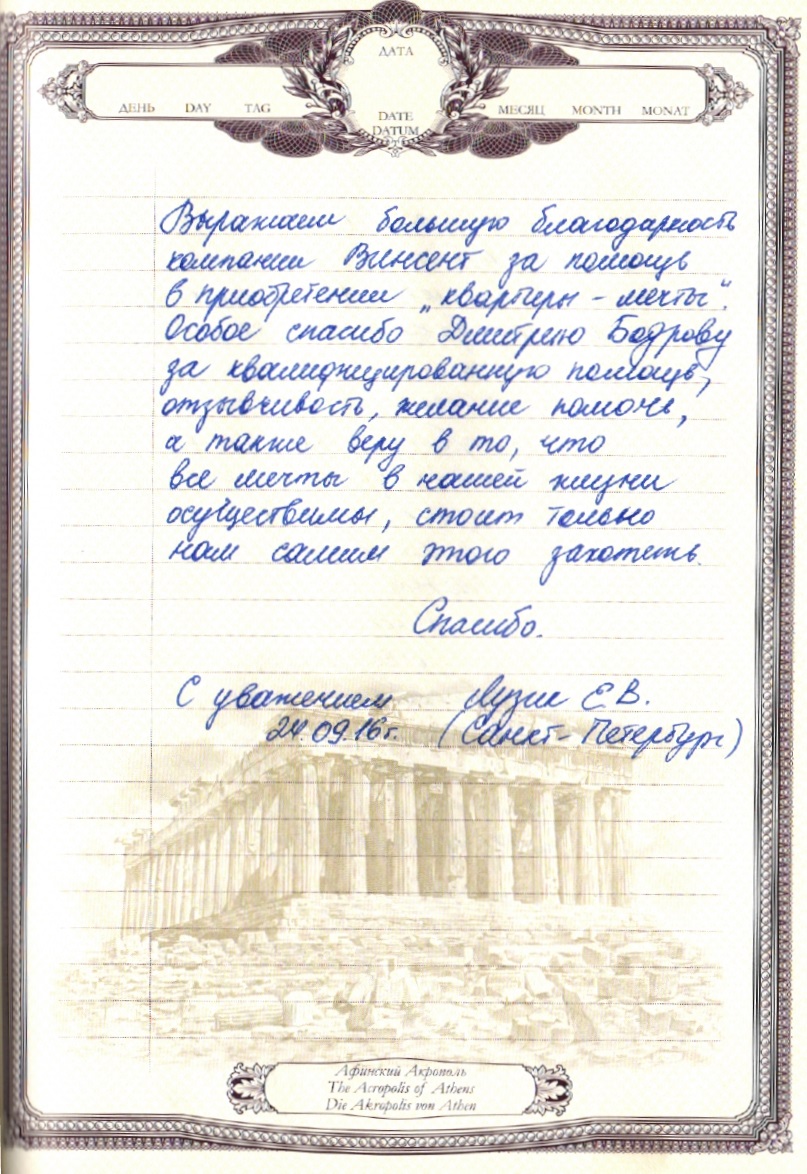 ДАТА
ДЕНЬ DAY TAG
DATE
DATUM
МЕСЯЦ MONTH MONAT
Выражаем большую благодарность
компании Винсент за помощь
в приобретении „квартиры - мечты“.
Особое спасибо Дмитрию Бодрову
за квалифицированную помощь,
отзывчивость, желание помочь,
а также веру в то, что
все мечты в нашей жизни
осуществимы, стоит только
нам самим этого захотеть.
Спасибо.
С уважением Лузик Е.В.
24.09.16г. (Санкт-Петербург)
Афинский Акрополь
The Acropolis of Athens
Die Akropolis von Athen